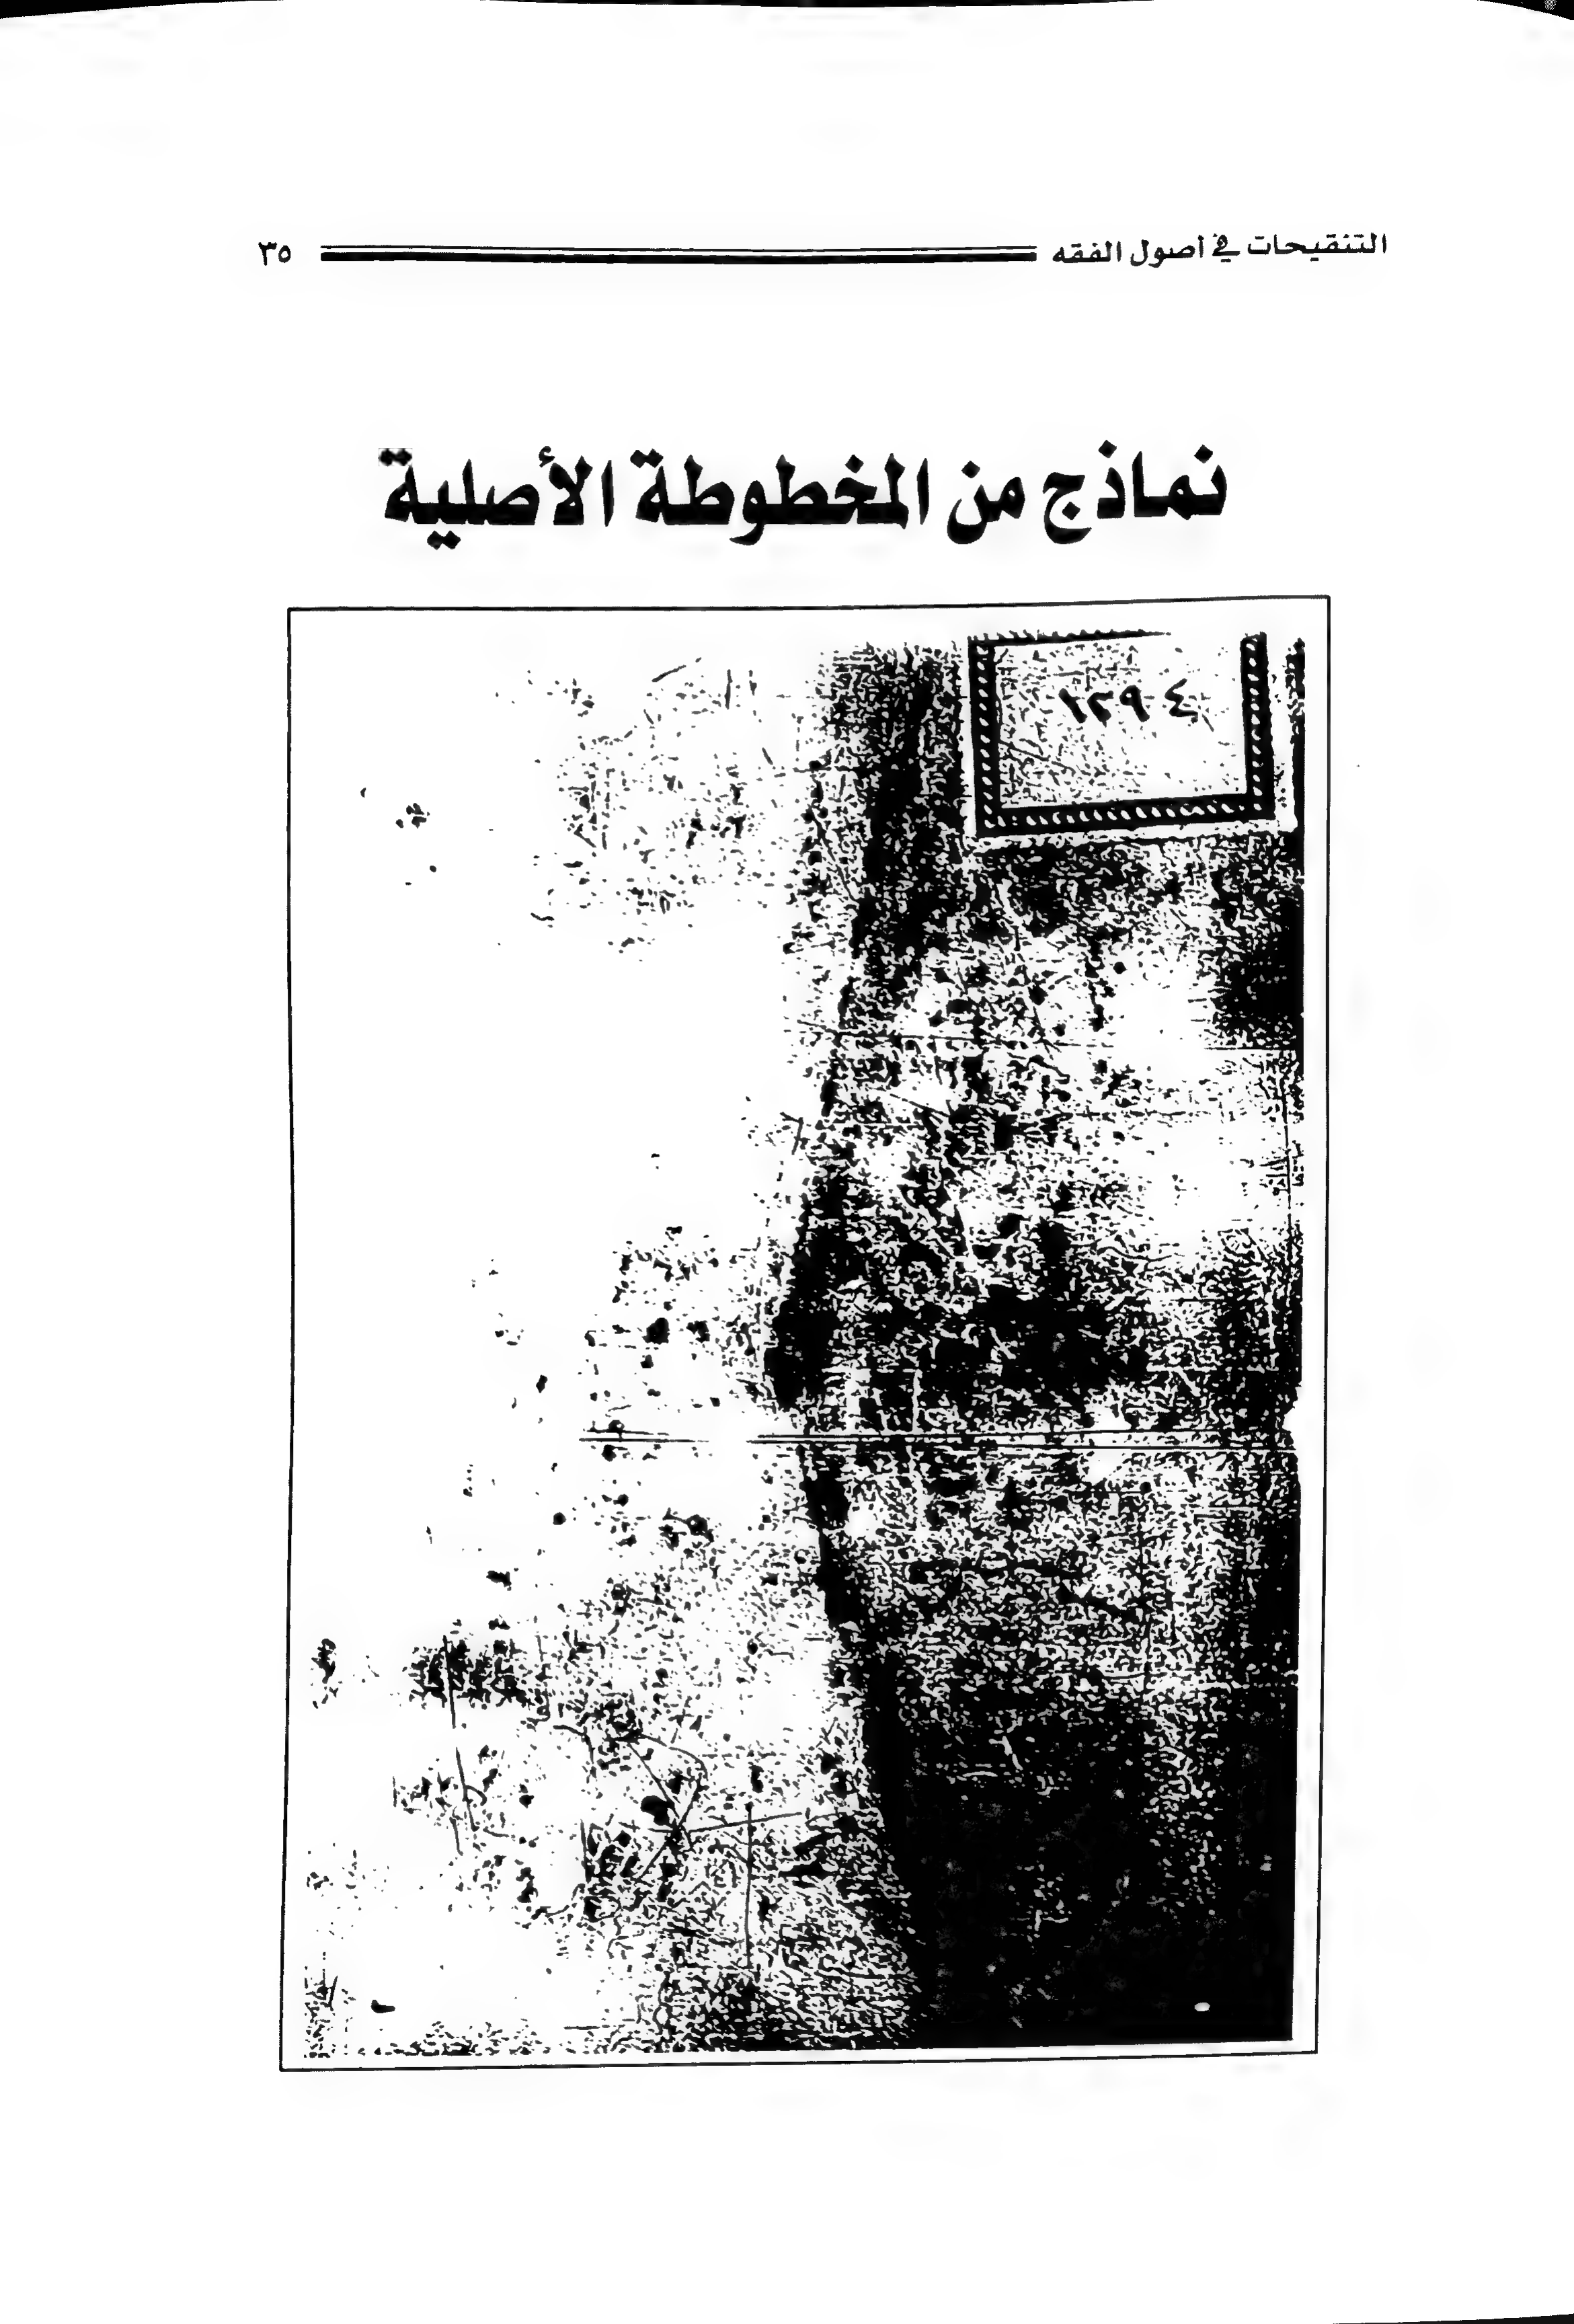 التنقيحات في أصول الفقه ٣٥
نماذج من المخطوطة الأصلية
١٢٩٠٤